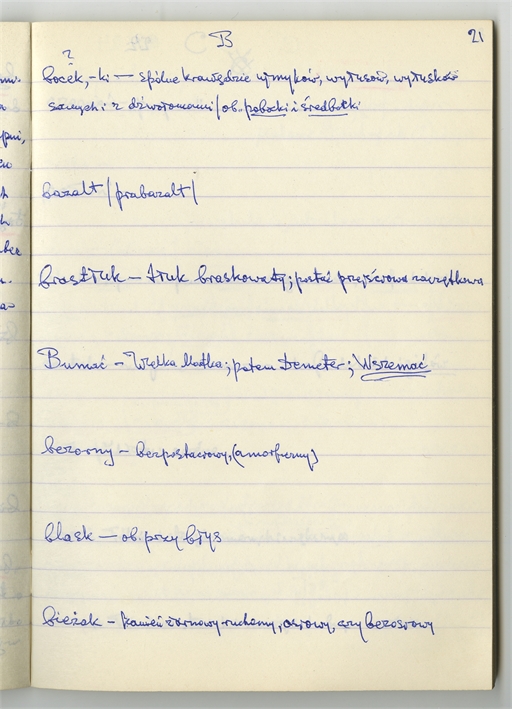 B
21
?
bocek, -ki — spólne krawędzie wymyków, wyłusów, wyłusków
samych i z dźwołomami / ob. pobocki i średbocki
bazalt / prabazalt /
brastłuk — tłuk braskowaty; postać przejściowa zaczątkowa
Bumać — Wielka Matka; potem Demeter; Wszemać
bezorny — bezpostaciowy, (amorficzny)
blask — ob. przy błys
bieżak — kamień żarnowy ruchomy, osiowy, czy bezosiowy